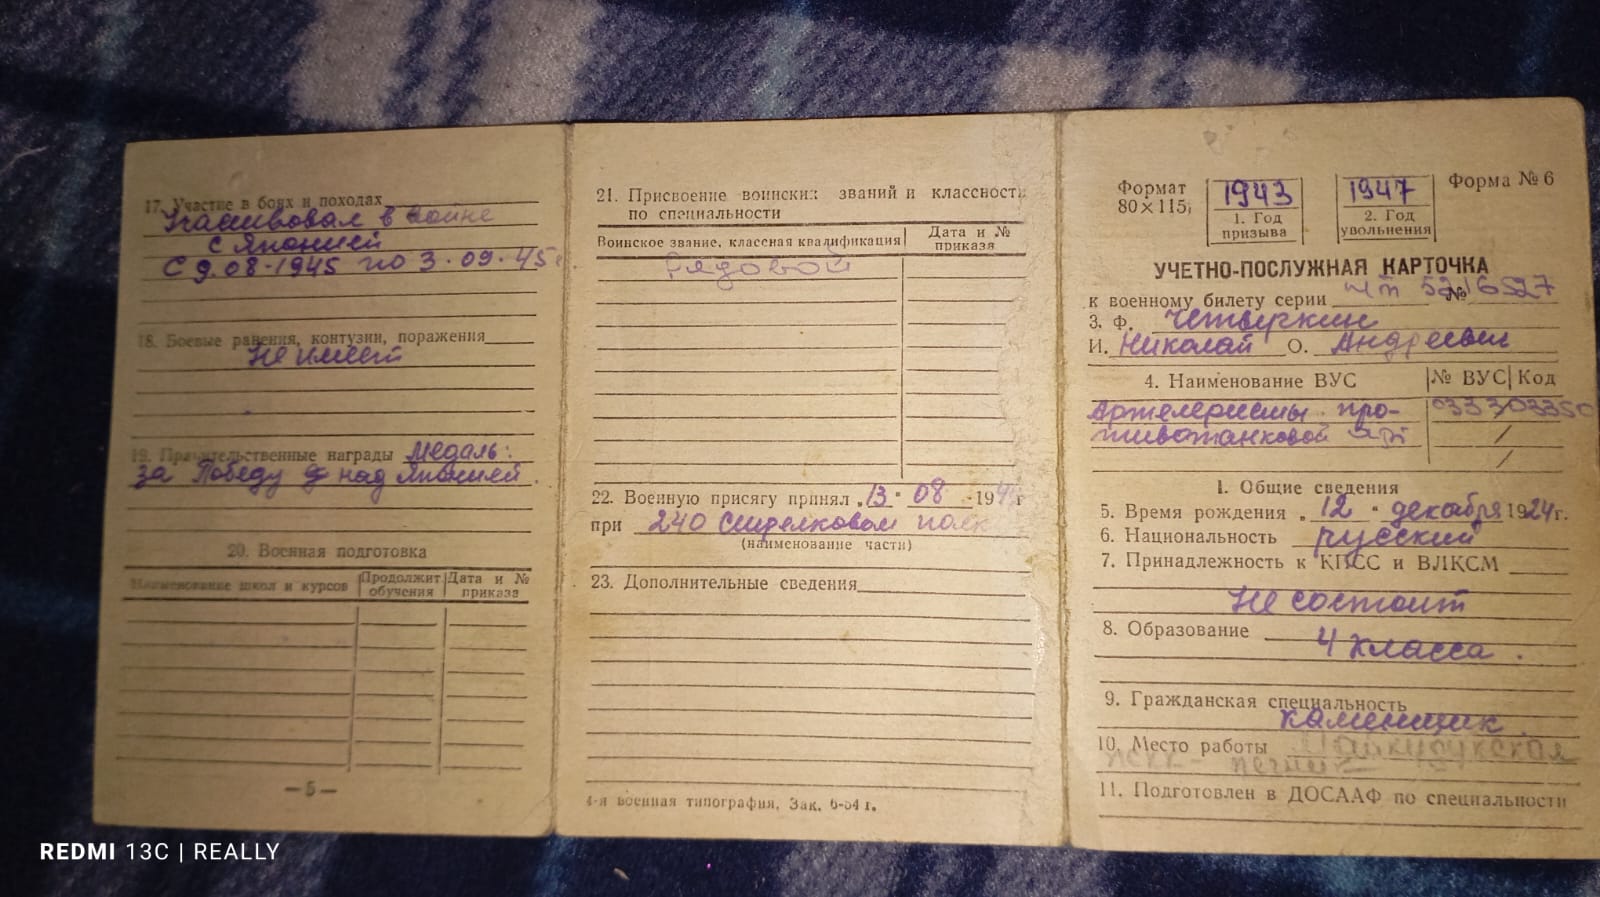 17. Участие в боях и походах
Учавствовал в войне
с Японией
С 9.08.1945 по 3.09.45 г.
18. Боевые ранения, контузии, поражения
Не имеет
19. Правительственные награды Медаль:
за Победу над Японией.
20. Военная подготовка
Наименование школ и курсов
Продолжит обучения
Дата и № приказа
— 5 —
21. Присвоение воинских званий и классности
по специальности
Воинское звание, классная квалификация
Дата и № приказа
Рядовой
22. Военную присягу принял „13" 08 194 г
при 240 Стрелковом полк
(наименование части)
23. Дополнительные сведения
4-я военная типография, Зак. 6-54 г.
Формат
80×115
1943
1. Год
призыва
1947
2. Год
увольнения
Форма № 6
УЧЕТНО-ПОСЛУЖНАЯ КАРТОЧКА
к военному билету серии №
3. Ф. Четыркин
И. Николай О. Андреевич
4. Наименование ВУС
№ ВУС
Код
Артелеристы про-
тивотанковой
1. Общие сведения
5. Время рождения „12" декабря 1924 г.
6. Национальность русский
7. Принадлежность к КПСС и ВЛКСМ
Не состоит
8. Образование
4 класса.
9. Гражданская специальность
каменщик
10. Место работы
11. Подготовлен в ДОСААФ по специальности
REDMI 13C | REALLY